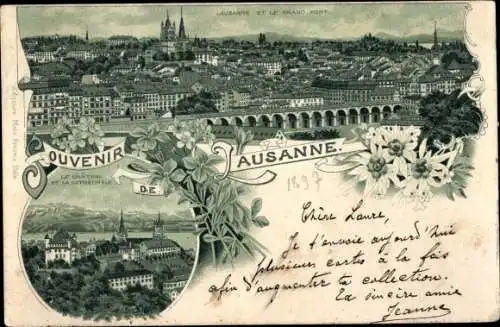 LAUSANNE ET LE GRAND PONT.
SOUVENIR
DE
LAUSANNE.
LE CHÂTEAU
ET LA CATHÉDRALE
1897
Chère Laure,
Je t'envoie aujourd'hui
plusieurs cartes à la fois
afin d'augmenter ta collection.
Ta sincère amie
Jeanne